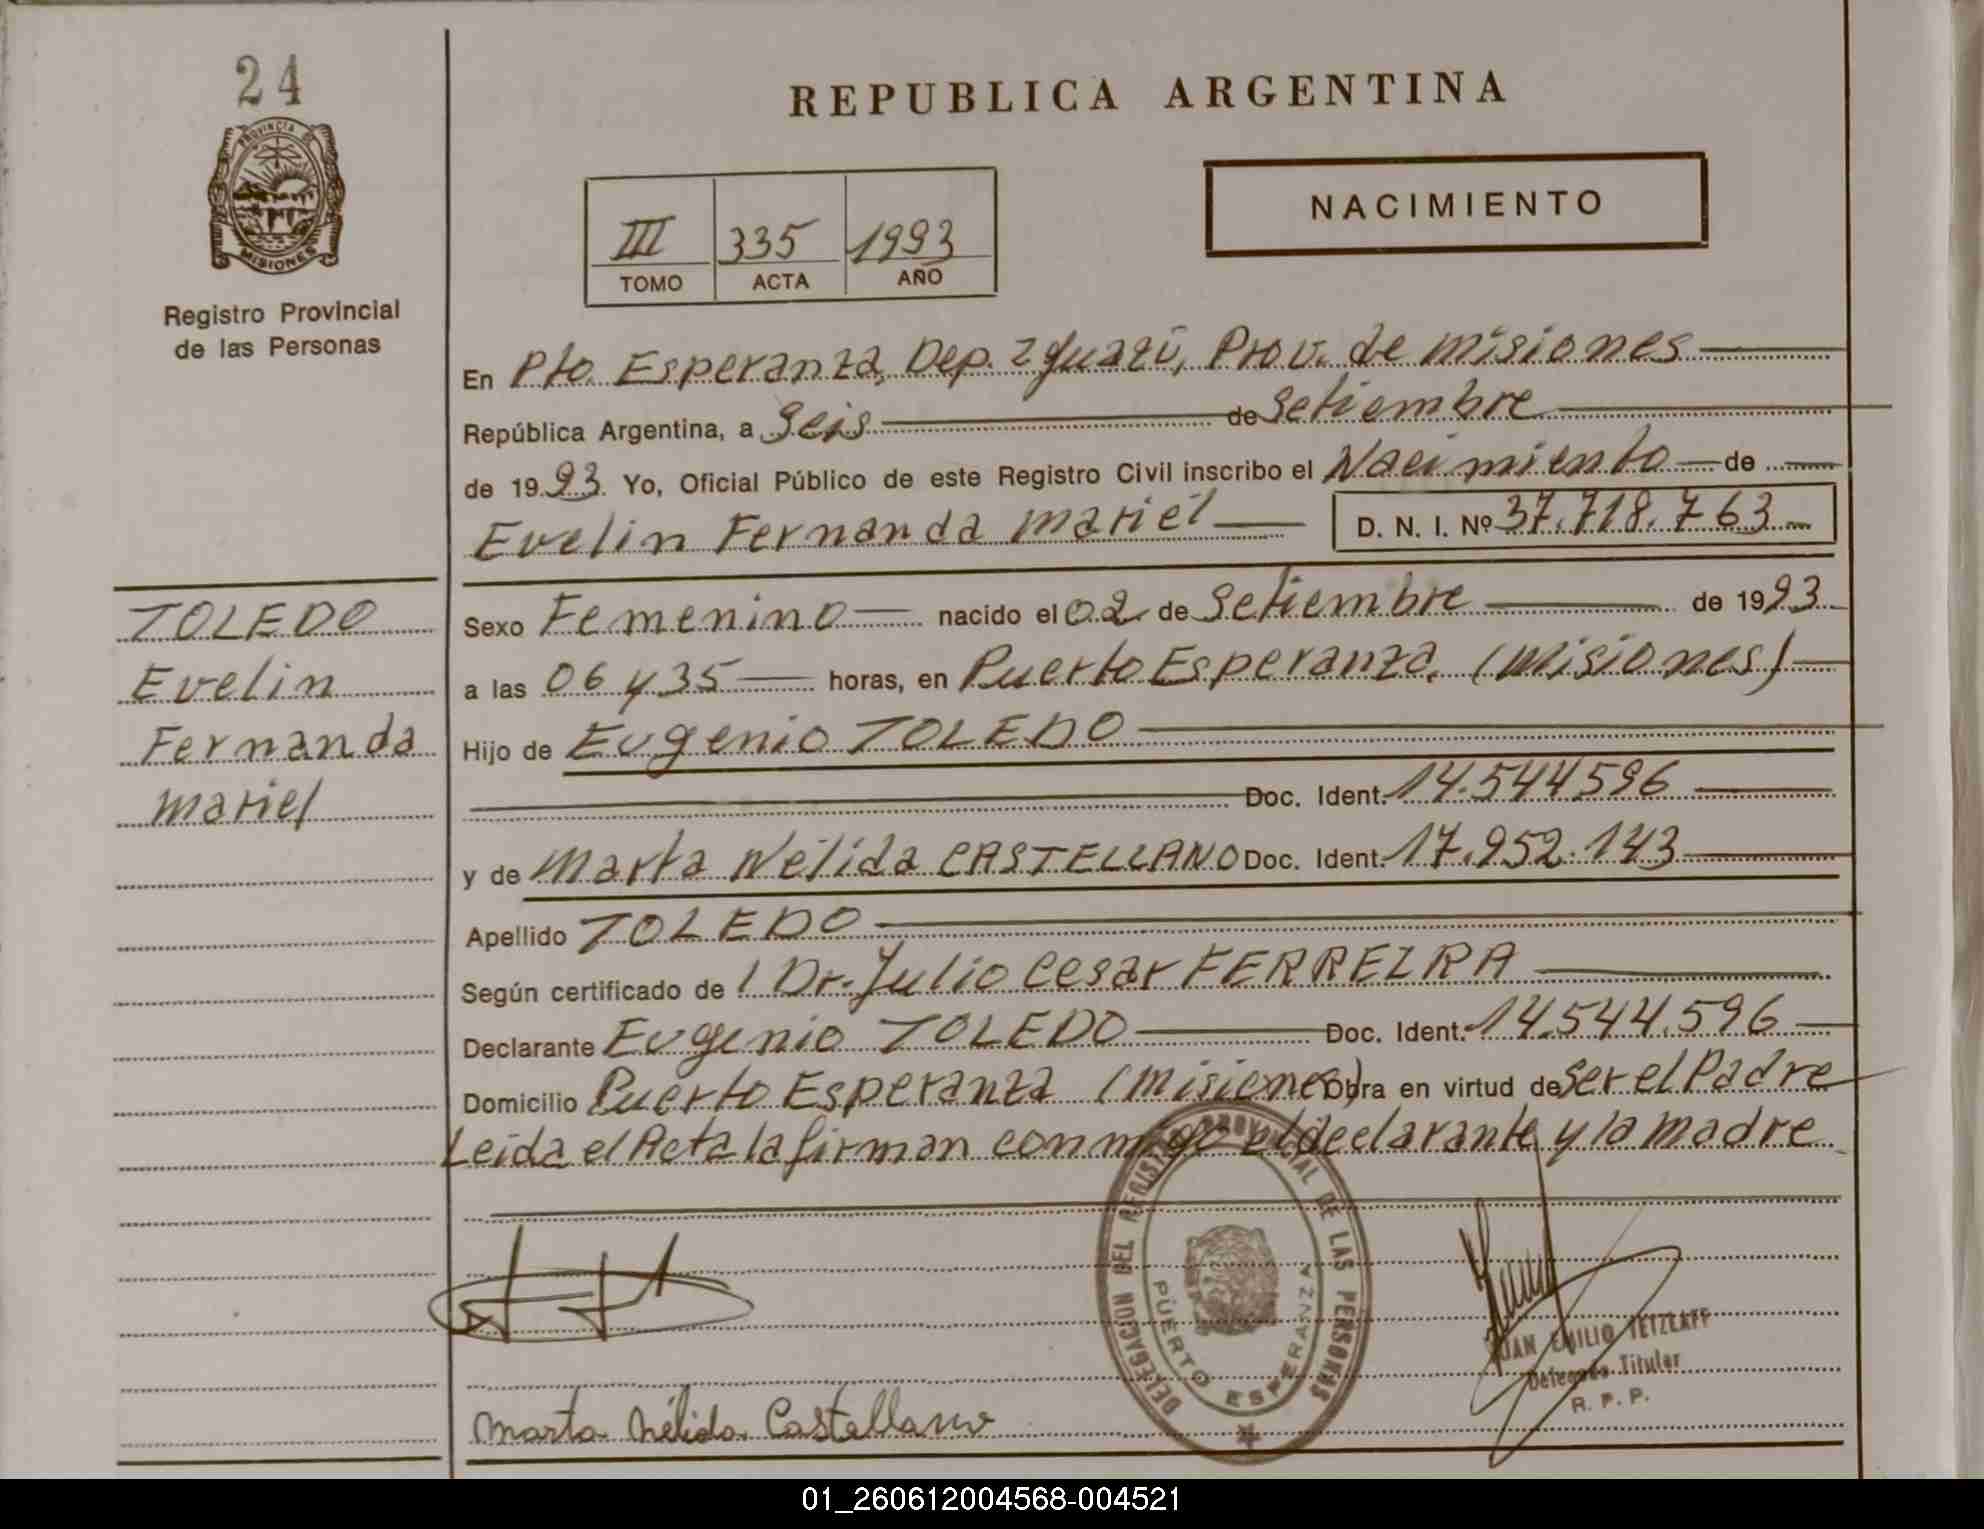 24
PROVINCIA DE
MISIONES
Registro Provincial
de las Personas
REPUBLICA ARGENTINA
III 335 1993
TOMO ACTA AÑO
NACIMIENTO
En Pto. Esperanza, Dep. Iguazú, Prov. de Misiones
República Argentina, a Seis de Setiembre
de 1993 Yo, Oficial Público de este Registro Civil inscribo el Nacimiento de
Evelin Fernanda Mariel D. N. I. Nº 37.718.763
TOLEDO
Evelin
Fernanda
Mariel
Sexo Femenino nacido el 02 de Setiembre de 1993
a las 06 y 35 horas, en Puerto Esperanza. (Misiones)
Hijo de Eugenio TOLEDO
Doc. Ident. 14.544596
y de Marta Nélida CASTELLANO Doc. Ident. 17.952.143
Apellido TOLEDO
Según certificado de / Dr. Julio Cesar FERREIRA
Declarante Eugenio TOLEDO Doc. Ident. 14.544.596
Domicilio Puerto Esperanza (Misiones) Obra en virtud de ser el Padre
Leida el Acta la firman conmigo el declarante y la madre
DELEGACION DEL REGISTRO PROVINCIAL DE LAS PERSONAS
PUERTO ESPERANZA
JUAN EMILIO TETZLAFF
Delegado Titular
R. P. P.
Marta Nélida Castellano
01_260612004568-004521